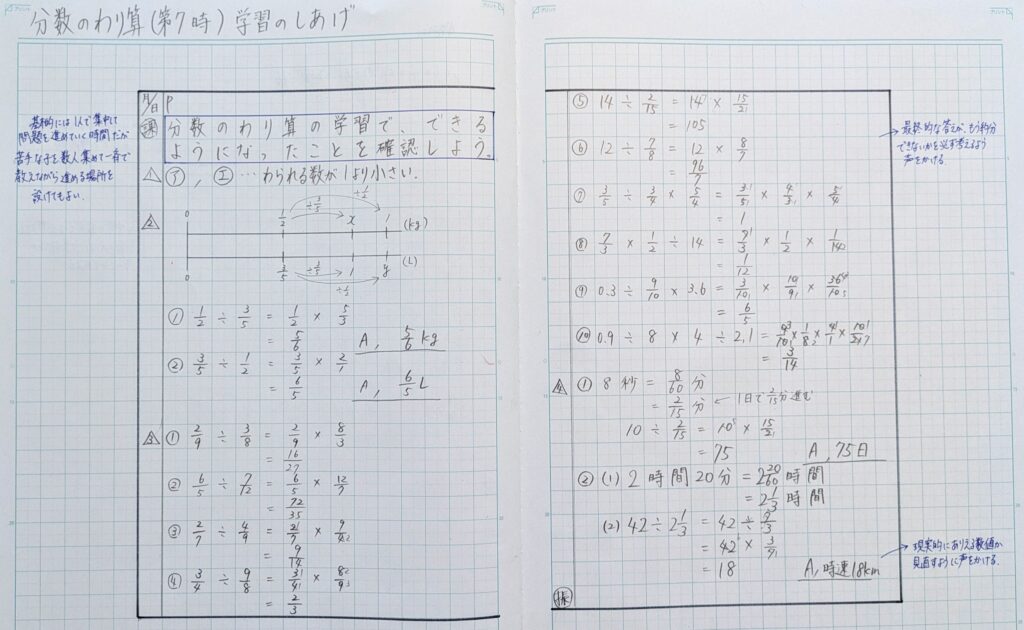 分数のわり算(第7時)学習のしあげ
基本的には1人で集中して
問題を進めていく時間だが
苦手な子を数人集めて一番で
教えながら進める場所を
設けてもよい.
月/日 P
課 分数のわり算の学習で、できる
ようになったことを確認しよう。
1 ㋐, ㋓…わられる数が1より小さい.
÷1/2
÷3/5
2 0 1/2 x 1 (kg)
0 3/5 1 y (L)
÷3/5
÷1/2
① 1/2 ÷ 3/5 = 1/2 × 5/3
= 5/6 A, 5/6 kg
② 3/5 ÷ 1/2 = 3/5 × 2/1
= 6/5 A, 6/5 L
3 ① 2/9 ÷ 3/8 = 2/9 × 8/3
= 16/27
② 6/5 ÷ 7/12 = 6/5 × 12/7
= 72/35
③ 2/7 ÷ 4/9 = 2/7 × 9/4
= 9/14
④ 3/4 ÷ 9/8 = 3/4 × 8/9
= 2/3
⑤ 14 ÷ 2/15 = 14 × 15/2
= 105
⑥ 12 ÷ 7/8 = 12 × 8/7
= 96/7
⑦ 3/5 ÷ 3/4 × 5/4 = 3/5 × 4/3 × 5/4
= 1
⑧ 7/3 × 1/2 ÷ 14 = 7/3 × 1/2 × 1/14
= 1/12
⑨ 0.3 ÷ 9/10 × 3.6 = 3/10 × 10/9 × 36/10
= 6/5
⑩ 0.9 ÷ 8 × 4 ÷ 2.1 = 9/10 × 1/8 × 4/1 × 10/21
= 3/14
4 ① 8秒 = 8/60 分
= 2/15 分 ← 1日で2/15分進む
10 ÷ 2/15 = 10 × 15/2
= 75 A, 75日
② (1) 2時間20分 = 2 20/60 時間
= 2 1/3 時間
(2) 42 ÷ 2 1/3 = 42 ÷ 7/3
= 42 × 3/7
= 18 A, 時速18km
振
最終的な答えが、もう約分
できないかを必ず考えるよう
声をかける.
現実的にありえる数値か
見直すように声をかける.